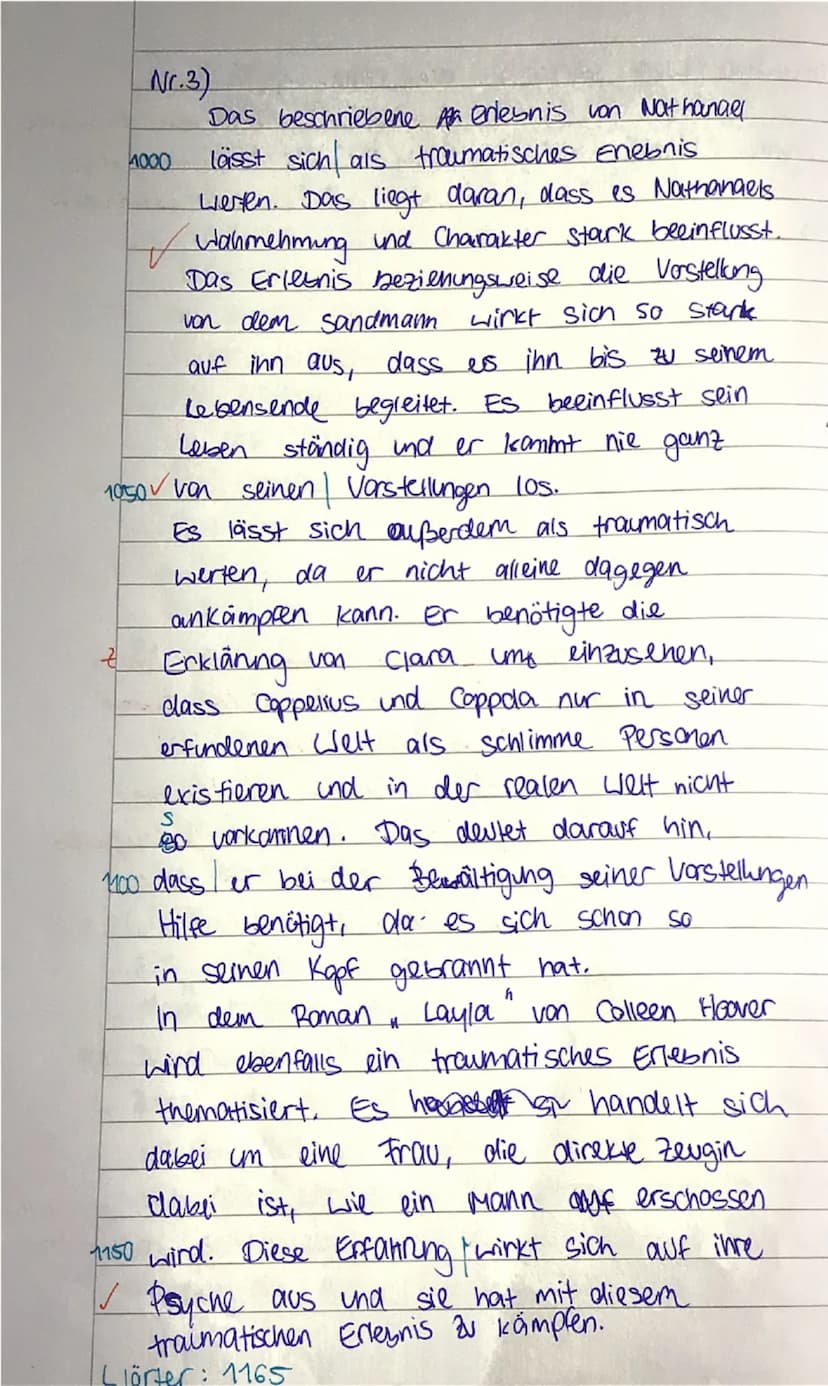 Nr. 3)
Das beschriebene Erlebnis von Nathanael
1000 lässt sich| als traumatisches Erlebnis
werten. Das liegt daran, dass es Nathanaels
✓ Wahrnehmung und Charakter stark beeinflusst.
Das Erlebnis beziehungsweise die Vorstellung
von dem Sandmann wirkt sich so stark
auf ihn aus, dass es ihn bis zu seinem
Lebensende begleitet. Es beeinflusst sein
Leben ständig und er kommt nie ganz
1050 ✓ von seinen | Vorstellungen los.
Es lässt sich außerdem als traumatisch
werten, da er nicht alleine dagegen
ankämpfen kann. Er benötigte die
Z Erklärung von Clara um einzusehen,
dass Coppelius und Coppola nur in seiner
erfundenen Welt als schlimme Personen
existieren und in der realen Welt nicht
so vorkommen. Das deutet darauf hin,
1100 dass | er bei der Bewältigung seiner Vorstellungen
Hilfe benötigt, da es sich schon so
in seinen Kopf gebrannt hat.
In dem Roman „Layla" von Colleen Hoover
wird ebenfalls ein traumatisches Erlebnis
thematisiert. Es handelt sich
dabei um eine Frau, die direkte Zeugin
dabei ist, wie ein Mann erschossen
1150 wird. Diese Erfahrung | wirkt sich auf ihre
✓ Psyche aus und sie hat mit diesem
traumatischen Erlebnis zu kämpfen.
Wörter: 1165